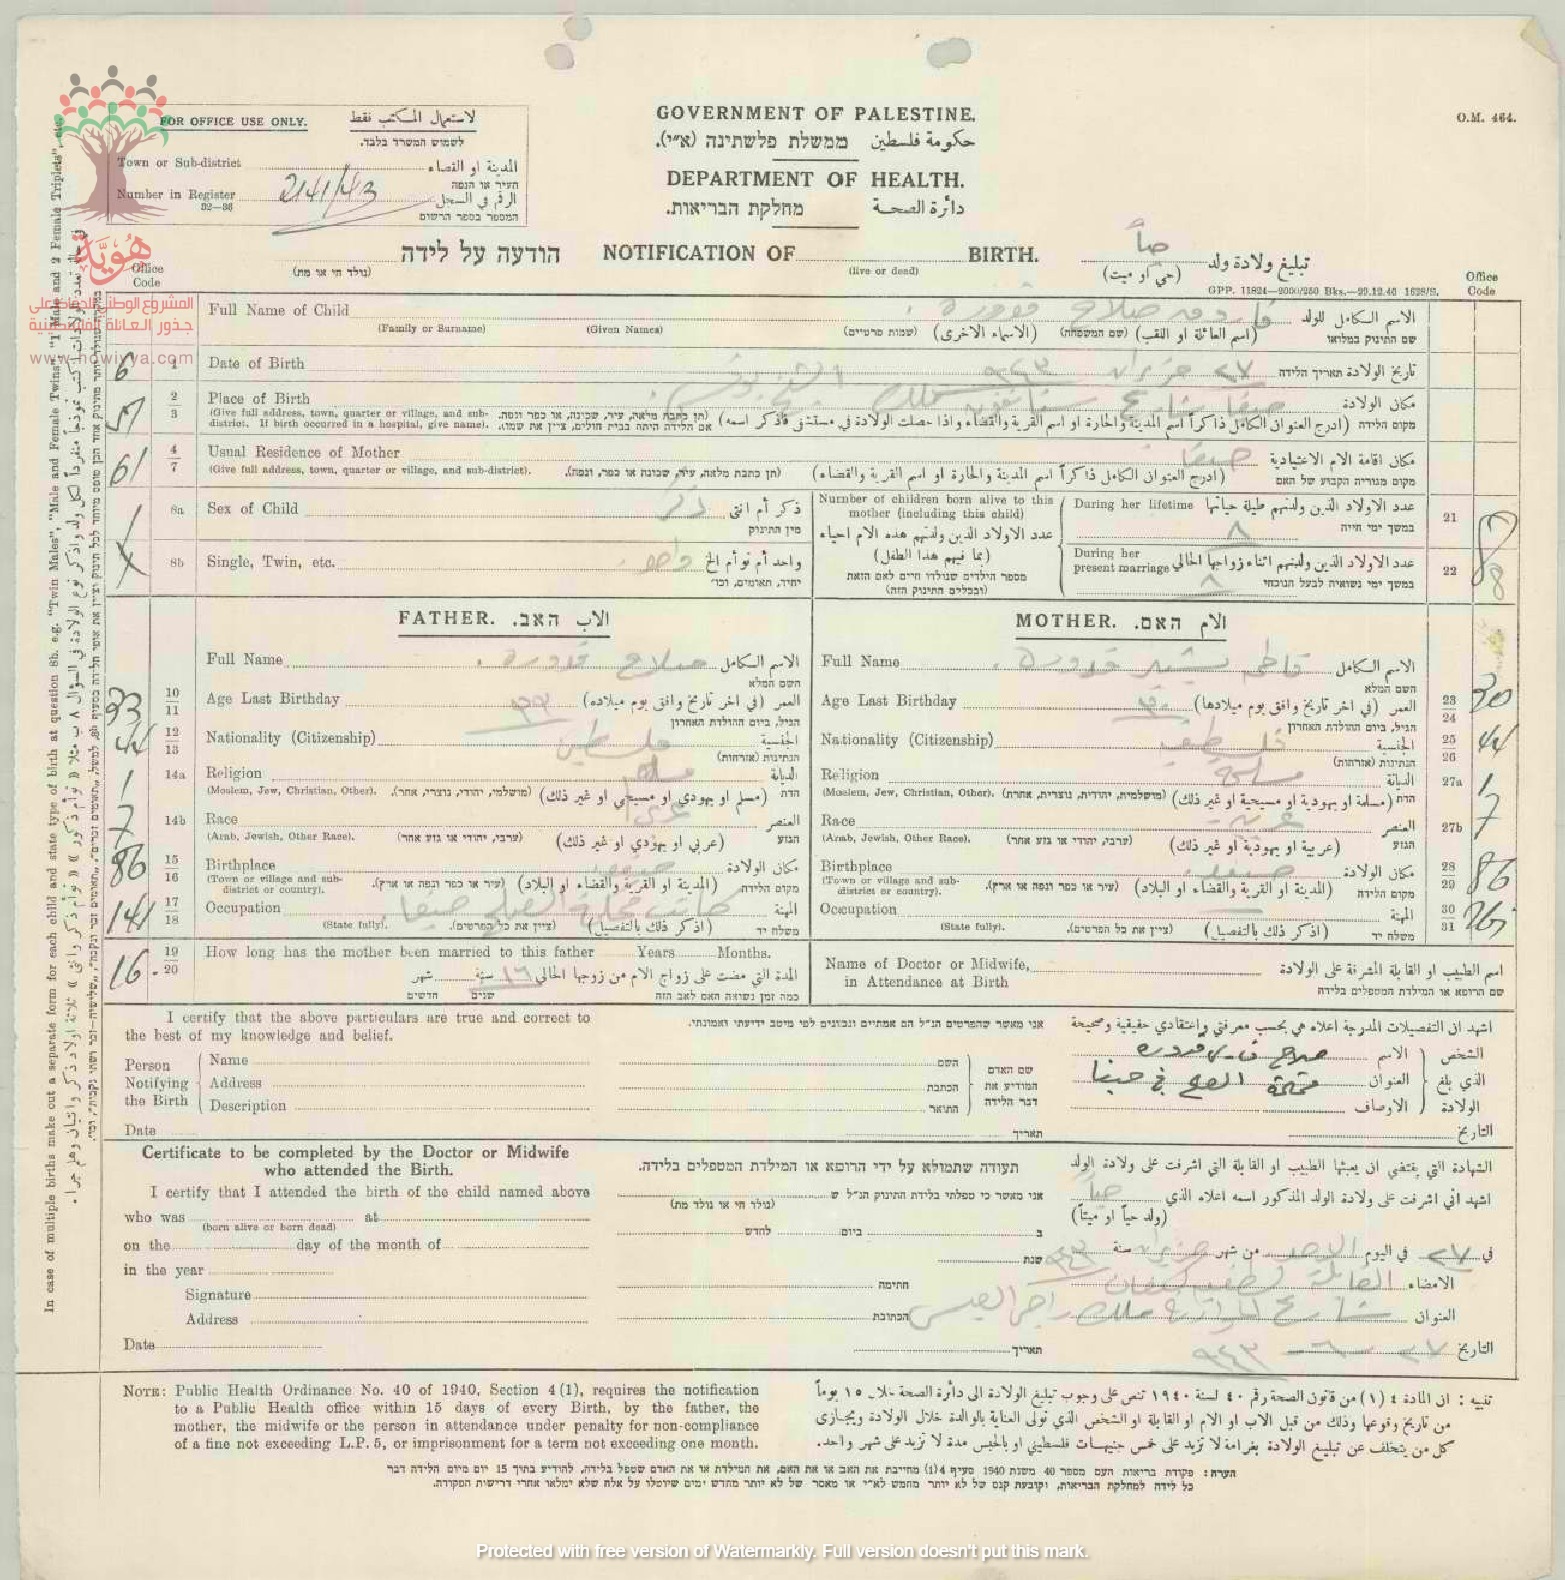 GOVERNMENT OF PALESTINE.
O.M. 464.
حكومة فلسطين ממשלת פלשתינה (א״י).
DEPARTMENT OF HEALTH.
دائرة الصحة מחלקת הבריאות.
FOR OFFICE USE ONLY. لاستعمال المكتب فقط
לשמוש המשרד בלבד.
Town or Sub-district المدينة او القضاء
העיר או הנפה
Number in Register 241/43 الرقم في السجل
32—36 המספר בספר הרשום
هُويّة
المشروع الوطني للحفاظ على
جذور العائلة الفلسطينية
www.howiyya.com
הודעה על לידה NOTIFICATION OF BIRTH. تبليغ ولادة ولد حياً
(נולד חי או מת) (live or dead) (حي او ميت)
GPP. 11824—2000/250 Bks.—22.12.40 1628/S.
Office Code Office Code
Full Name of Child صلاح قدورة الاسم الكامل للولد
(Family or Surname) (Given Names) (שמות פרטיים) (الاسماء الاخرى) (שם המשפחה) (اسم العائلة او اللقب) שם התינוק במלואו
6 1 Date of Birth ٢٧ حزيران ٩٤٣ تاريخ الولادة תאריך הלידה
2 3 Place of Birth حيفا شارع مكان الولادة
(Give full address, town, quarter or village, and sub-district. If birth occurred in a hospital, give name).
(תן כתבת מלאה, עיר, שכונה, או כפר ונפה. אם הלידה היתה בבית חולים, ציין את שמו).
(ادرج العنوان الكامل ذاكراً اسم المدينة والحارة او اسم القرية والقضاء واذا حصلت الولادة في مستشفى فاذكر اسمه) מקום הלידה
61 4 7 Usual Residence of Mother حيفا مكان اقامة الام الاعتيادية
(Give full address, town, quarter or village, and sub-district). (תן כתבת מלאה, עיר, שכונה או כפר, ונפה). (ادرج العنوان الكامل ذاكراً اسم المدينة والحارة او اسم القرية والقضاء) מקום מגוריה הקבוע של האם
8a Sex of Child ذكر ذكر أم انثى
מין התינוק
8b Single, Twin, etc. واحد واحد أم توأم الخ
יחיד, תאומים, וכו׳
Number of children born alive to this mother (including this child)
عدد الاولاد الذين ولدتهم هذه الام احياء (بما فيهم هذا الطفل)
מספר הילדים שנולדו חיים לאם הזאת (ובכללם התינוק הזה)
During her lifetime عدد الاولاد الذين ولدتهم طيلة حياتها ٨ 21 8
במשך ימי חייה
During her present marriage عدد الاولاد الذين ولدتهم اثناء زواجها الحالي ٨ 22 8
במשך ימי נשואיה לבעל הנוכחי
FATHER. الاب האב. MOTHER. الام האם.
Full Name صلاح قدورة الاسم الكامل
השם המלא
Full Name قدورة الاسم الكامل
השם המלא
33 10 11 Age Last Birthday ٣٣ العمر (في اخر تاريخ وافق يوم ميلاده)
הגיל, ביום ההולדת האחרון
Age Last Birthday ٣٠ العمر (في اخر تاريخ وافق يوم ميلادها) 23 24 30
הגיל, ביום ההולדת האחרון
44 12 13 Nationality (Citizenship) فلسطيني الجنسية
הנתינות (אזרחות)
Nationality (Citizenship) الجنسية 25 26 44
הנתינות (אזרחות)
1 14a Religion مسلم الديانة
(Moslem, Jew, Christian, Other). (מושלמי, יהודי, נוצרי, אחר). (مسلم او يهودي او مسيحي او غير ذلك) הדת
Religion مسلمة الديانة 27a 1
(Moslem, Jew, Christian, Other). (מושלמית, יהודית, נוצרית, אחרת) (مسلمة او يهودية او مسيحية او غير ذلك) הדת
7 14b Race عربي العنصر
(Arab, Jewish, Other Race). (ערבי, יהודי או גזע אחר) (عربي او يهودي او غير ذلك) הגזע
Race عربية العنصر 27b 7
(Arab, Jewish, Other Race). (ערבי, יהודי או גזע אחר) (عربية او يهودية او غير ذلك) הגזע
86 15 16 Birthplace مكان الولادة
(Town or village and sub-district or country). (עיר או כפר ונפה או ארץ). (المدينة او القرية والقضاء او البلاد) מקום הלידה
Birthplace مكان الولادة 28 29 86
(Town or village and sub-district or country). (עיר או כפר ונפה או ארץ). (المدينة او القرية والقضاء او البلاد) מקום הלידה
141 17 18 Occupation كاتب محكمة الصلح حيفا المهنة
(State fully). (ציין את כל הפרטים). (اذكر ذلك بالتفصيل) משלח יד
Occupation المهنة 30 31
(State fully). (ציין את כל הפרטים). (اذكر ذلك بالتفصيل) משלח יד
16 19 20 How long has the mother been married to this father Years Months.
المدة التي مضت على زواج الام من زوجها الحالي ١٦ سنة شهر
כמה זמן נשואה האם לאב הזה שנים חדשים
Name of Doctor or Midwife, in Attendance at Birth اسم الطبيب او القابلة المشرفة على الولادة
שם הרופא או המילדת המטפלים בלידה
I certify that the above particulars are true and correct to the best of my knowledge and belief.
אני מאשר שהפרטים הנ״ל הם אמתיים ונכונים לפי מיטב ידיעתי ואמונתי.
اشهد ان التفصيلات المدرجة اعلاه هي بحسب معرفتي واعتقادي حقيقية وصحيحة
Person Notifying the Birth Name השם שם האדם المودיע את דבר הלידה صلاح قدورة الاسم الشخص الذي بلغ الولادة
Address הכתבת محكمة الصلح في حيفا العنوان
Description התואר الاوصاف
Date תאריך التاريخ
Certificate to be completed by the Doctor or Midwife who attended the Birth.
תעודה שתמולא על ידי הרופא או המילדת המטפלים בלידה.
الشهادة التي يقتضي ان يعبئها الطبيب او القابلة التي اشرفت على ولادة الولد
I certify that I attended the birth of the child named above
אני מאשר כי טפלתי בלידת התינוק הנ״ל ש
اشهد اني اشرفت على ولادة الولد المذكور اسمه اعلاه الذي حياً
who was at
(born alive or born dead) (נולד חי או נולד מת) (ولد حياً او ميتاً)
on the day of the month of ב ביום: לחדש
في ٢٧ في اليوم الاحد من شهر حزيران سنة ٩٤٣
in the year שנת
Signature חתימה القابلة الامضاء
Address הכתובת شارع العنوان
Date תאריך ٢٧ — ٦ — ٩٤٣ التاريخ
NOTE: Public Health Ordinance No. 40 of 1940, Section 4(1), requires the notification
to a Public Health office within 15 days of every Birth, by the father, the
mother, the midwife or the person in attendance under penalty for non-compliance
of a fine not exceeding L.P.5, or imprisonment for a term not exceeding one month.
تنبيه : ان المادة ٤ (١) من قانون الصحة رقم ٤٠ لسنة ١٩٤٠ تنص على وجوب تبليغ الولادة الى دائرة الصحة خلال ١٥ يوماً
من تاريخ وقوعها وذلك من قبل الاب او الام او القابلة او الشخص الذي تولى العناية بالوالدة خلال الولادة ويجازى
كل من يتخلف عن تبليغ الولادة بغرامة لا تزيد على خمس جنيهات فلسطيني او بالحبس مدة لا تزيد على شهر واحد.
הערה: פקודת בריאות העם מספר 40 משנת 1940 סעיף 4(1) מחייבת את האב או את האם, את המילדת או את האדם שטפל בלידה, להודיע בתוך 15 יום מיום הלידה דבר
כל לידה למחלקת הבריאות, וקובעת קנס של לא יותר מחמש לא״י או מאסר של לא יותר מחדש ימים שיוטלו על אלה שלא ימלאו אחרי דרישות הפקודה.
In case of multiple births make out a separate form for each child and state type of birth at question 8b. e.g. "Twin Males", "Male and Female Twins", "1 Male and 2 Female Triplets", etc.
Protected with free version of Watermarkly. Full version doesn't put this mark.